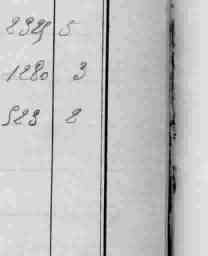 2325 5
1280 3
523 8